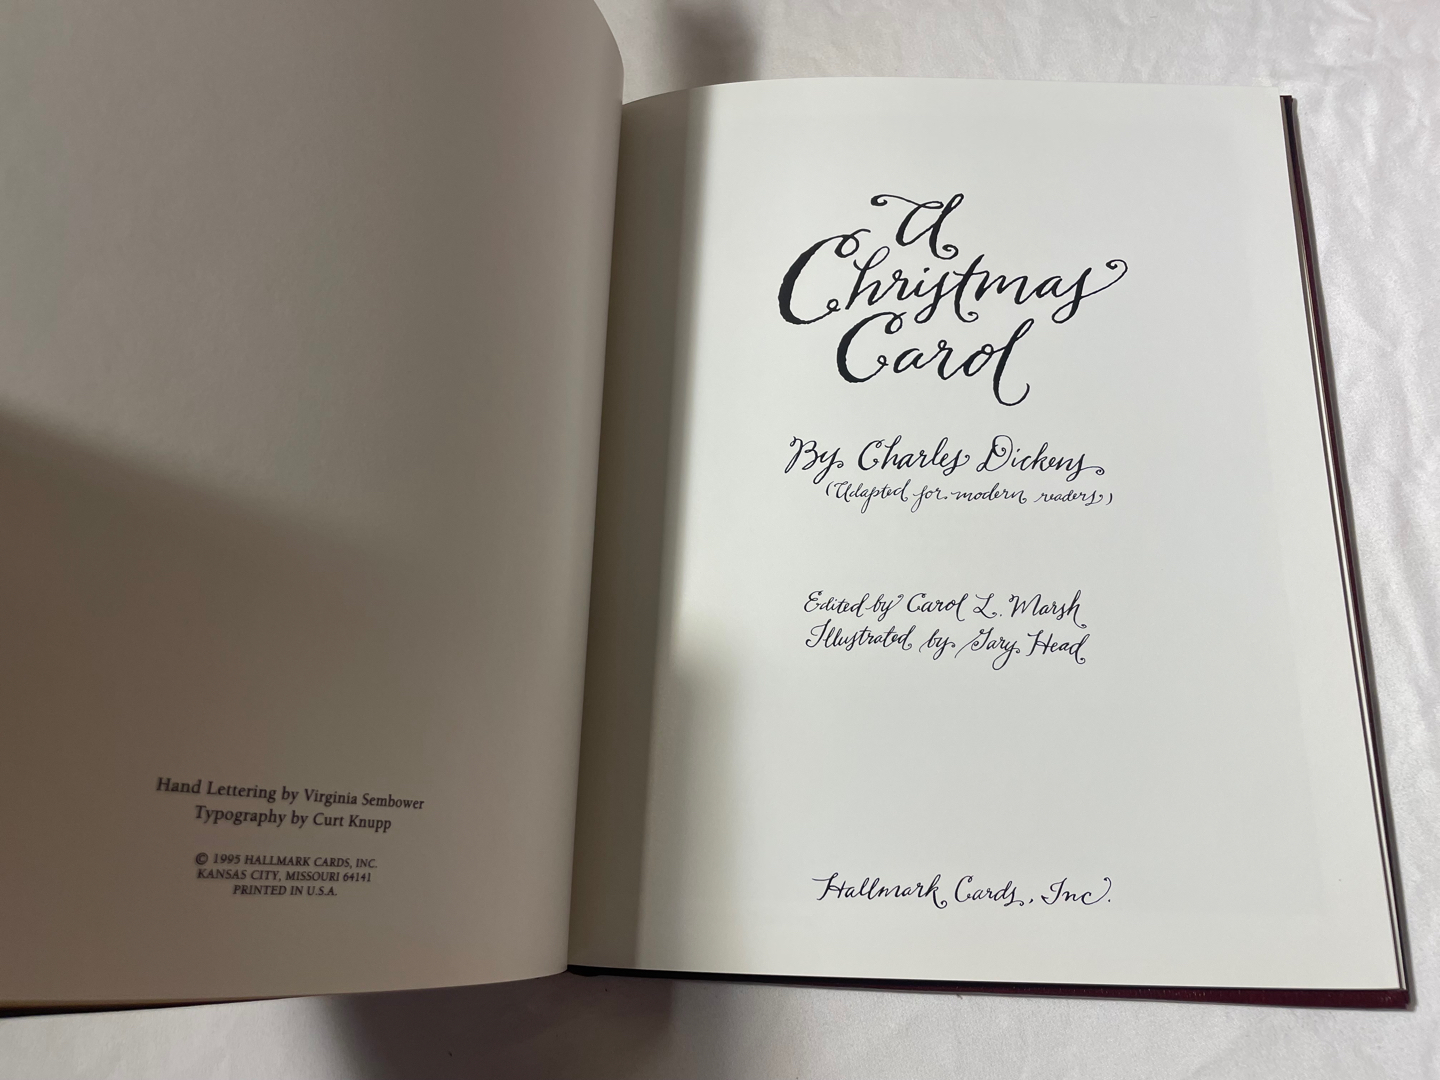 Hand Lettering by Virginia Sembower
Typography by Curt Knupp
© 1995 HALLMARK CARDS, INC.
KANSAS CITY, MISSOURI 64141
PRINTED IN U.S.A.
A
Christmas
Carol
By Charles Dickens
(Adapted for modern readers)
Edited by Carol L. Marsh
Illustrated by Gary Head
Hallmark Cards, Inc.